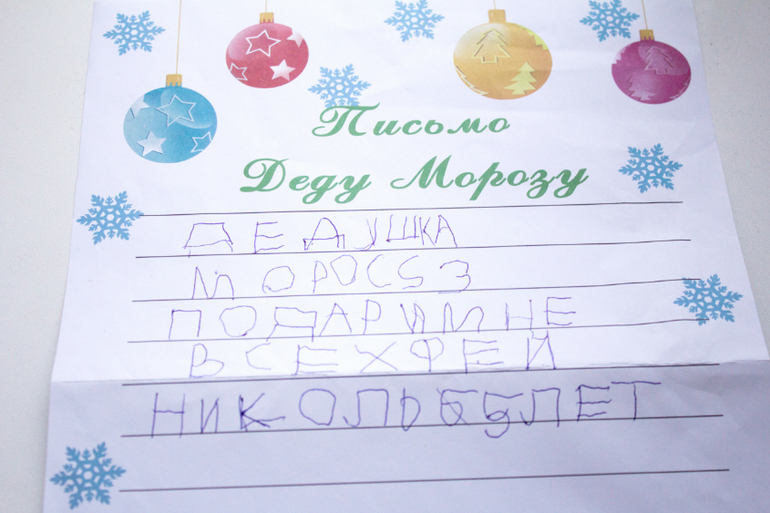 Письмо
Деду Морозу
ДЕДУШКА
МОРОССЗ
ПОДАРИ МНЕ
ВСЕХ ФЕЙ
НИКОЛЬ 5 ЛЕТ